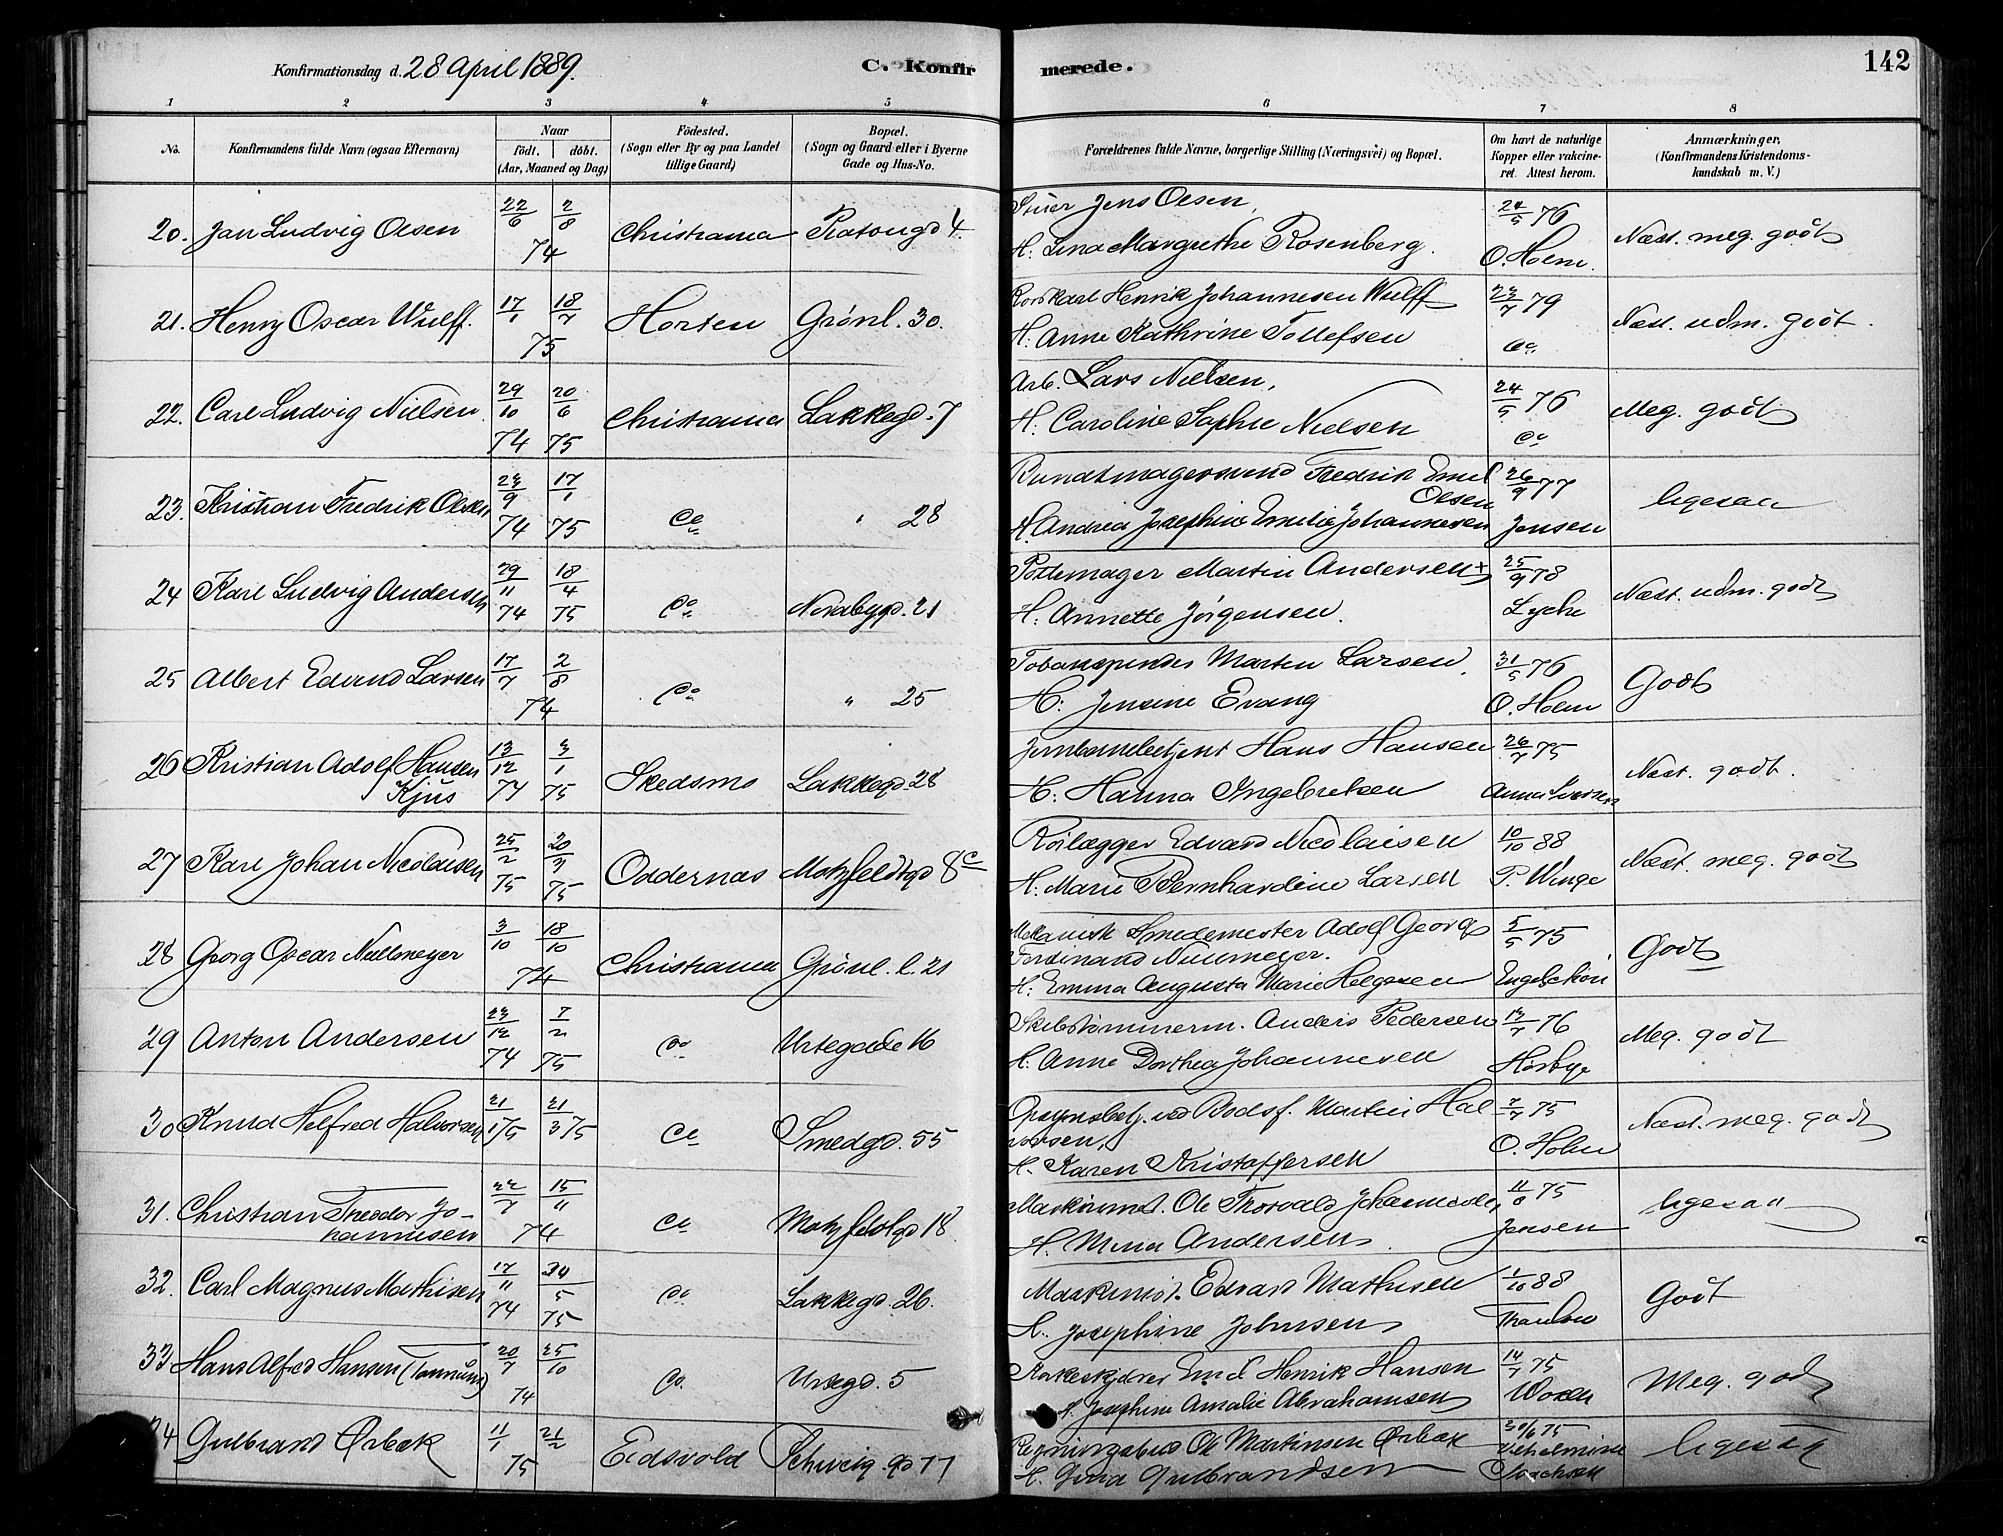 Konfirmationsdag d. 28 April 1889.
C. Konfirmerede.
142
1 2 3 4 5 6 7 8
No.
Konfirmandens fulde Navn (ogsaa Efternavn)
Naar
födt. döbt.
(Aar, Maaned og Dag)
Födested.
(Sogn eller By og paa Landet
tillige Gaard)
Bopæl.
(Sogn og Gaard eller i Byerne
Gade og Hus-No.
Forældrenes fulde Navne, borgerlige Stilling (Næringsvei) og Bopæl.
Om havt de naturlige
Kopper eller vakcine-
ret. Attest herom.
Anmærkninger,
(Konfirmandens Kristendoms-
kundskab m. V.)
20. Jan Ludvig Olsen 22/6 2/8 74 Christiania 4. Jens Olsen, H. Lina Margrethe Rosenberg. 24/5 76 O. Holm. Næst. meg. godt
21. Henry Oscar Wulff. 17/1 18/7 75 Horten Grønl. 30. Henrik Johannesen Wulff H. Anne Kathrine Tollefsen 79 Do Næst. udm. godt.
22. Carl Ludvig Nielsen 29/10 74 20/6 75 Christiania Lakkegd. 7 Arb. Lars Nielsen, H. Caroline Sophie Nielsen 24/5 76 Do Meg. godt
23. Kristian Fredrik Olsen 23/9 74 17/1 75 Do " 28 Fredrik Emil Olsen H. Andrea Josephine Emilie Johannesen 26/9 77 Jensen ligesaa
24 Karl Ludvig Andersen 29/11 74 18/4 75 Do Nordbygd. 21 Pottemager Martin Andersen + H. Annette Jørgensen. 25/9 78 Lyche Næst. udm. godt
25 Albert Edvard Larsen 17/7 2/8 74 Do " 25 Tobaksspinder Martin Larsen, H. Jensine Evang 31/5 76 O. Holm Godt
26 Kristian Adolf Hansen Kjus 13/12 74 3/1 75 Skedsmo Lakkegd. 28 Jernbanebetjent Hans Hansen H. Hanna Ingebretsen 26/7 75 Anna Iversen Næst. godt.
27 Karl Johan Nicolaisen 25/2 75 20/7 75 Oddernæs Motzfeldtgd 8c Rørlægger Edvard Nicolaisen H. Marie Bernhardine Larsen 10/10 88 P. Winge Næst. meg. godt
28 Georg Oscar Nullmeyer 3/10 18/10 74 Christiania Grönl. l. 21 Mekanisk Smedemester Adolf Georg Ferdinand Nullmeyer. H. Emma Augusta Marie Helgesen 5/5 75 Engelskøn Godt
29 Anton Andersen 23/12 74 7/2 75 Do Urtegade 16 Skibstömmerm. Anders Pedersen H. Anne Dorthea Johannesen 76 Hørbye Meg. godt
30 Knud Helfred Halvorsen 21/1 75 21/3 75 Do Smedgd. 55 Opsynsbetj. ved Bodsf. Martin Halvorsen, H. Karen Kristoffersen 75 O. Holm Næst. meg. godt
31. Christian Theodor Johannesen 22/7 15/11 74 Do Motzfeldtgd 18. Maskinmst. Ole Thorvald Johannesen, H. Mina Andersen. 11/8 75 Jensen ligesaa
32. Carl Magnus Mathisen 17/11 74 5 75 Do Lakkegd. 26. Maskinist. Edvard Mathisen H. Josephine Johnsen 1/10 88 Godt
33 Hans Alfred Hansen 20/7 25/10 74 Do. Urtegd. 5 Emil Henrik Hansen H. Josephine Amalie Abrahamsen 14/7 75 Meg. godt
34 Gulbrand Ørbæk 11/1 21/2 75 Eidsvold Schweig. gd 77 Ole Martinsen Ørbæk H. Gina Gulbrandsen 30/6 75 Vilhelmine ligesaa